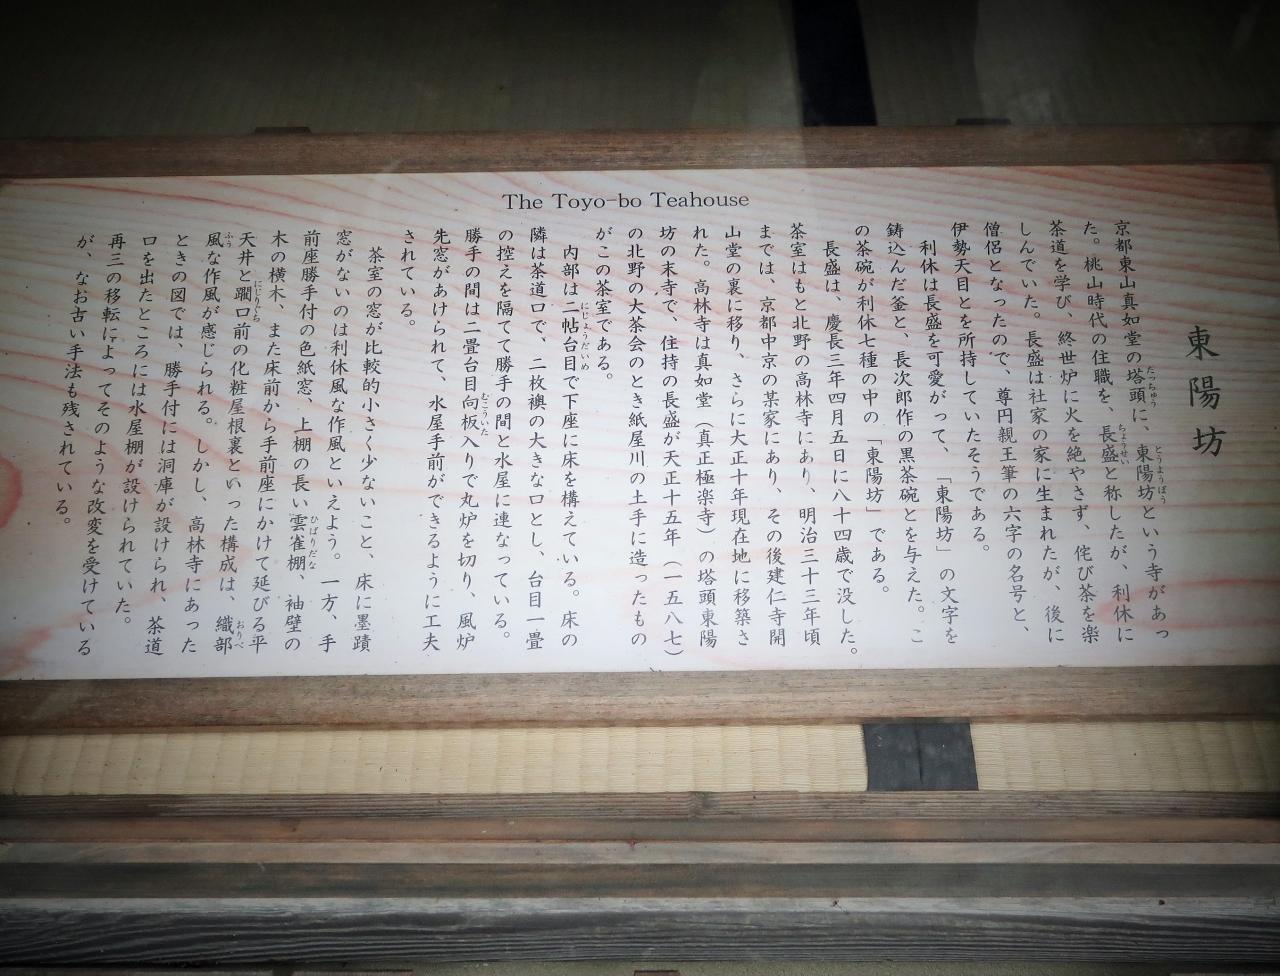 The Toyo-bo Teahouse
東陽坊
京都東山真如堂の塔頭に、東陽坊という寺があっ
た。桃山時代の住職を、長盛と称したが、利休に
茶道を学び、終世炉に火を絶やさず、侘び茶を楽
しんでいた。長盛は社家の家に生まれたが、後に
僧侶となったので、尊円親王筆の六字の名号と、
伊勢天目とを所持していたそうである。
利休は長盛を可愛がって、「東陽坊」の文字を
鋳込んだ釜と、長次郎作の黒茶碗とを与えた。こ
の茶碗が利休七種の中の「東陽坊」である。
長盛は、慶長三年四月五日に八十四歳で没した。
茶室はもと北野の高林寺にあり、明治三十三年頃
までは、京都中京の某家にあり、その後建仁寺開
山堂の裏に移り、さらに大正十年現在地に移築さ
れた。高林寺は真如堂（真正極楽寺）の塔頭東陽
坊の末寺で、住持の長盛が天正十五年（一五八七）
の北野の大茶会のとき紙屋川の土手に造ったもの
がこの茶室である。
内部は二帖台目で下座に床を構えている。床の
隣は茶道口で、二枚襖の大きな口とし、台目一畳
の控えを隔てて勝手の間と水屋に連なっている。
勝手の間は二畳台目向板入りで丸炉を切り、風炉
先窓があけられて、水屋手前ができるように工夫
されている。
茶室の窓が比較的小さく少ないこと、床に墨蹟
窓がないのは利休風な作風といえよう。一方、手
前座勝手付の色紙窓、上棚の長い雲雀棚、袖壁の
木の横木、また床前から手前座にかけて延びる平
天井と躙口前の化粧屋根裏といった構成は、織部
風な作風が感じられる。しかし、高林寺にあった
ときの図では、勝手付には洞庫が設けられ、茶道
口を出たところには水屋棚が設けられていた。
再三の移転によってそのような改変を受けている
が、なお古い手法も残されている。